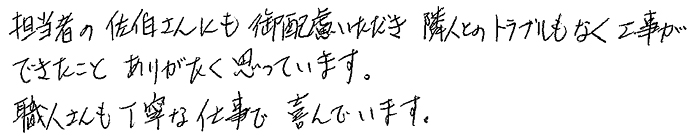 担当者の佐伯さんにも御配慮いただき 隣人とのトラブルもなく工事が
できたこと ありがたく思っています。
職人さんも丁寧な仕事で 喜んでいます。